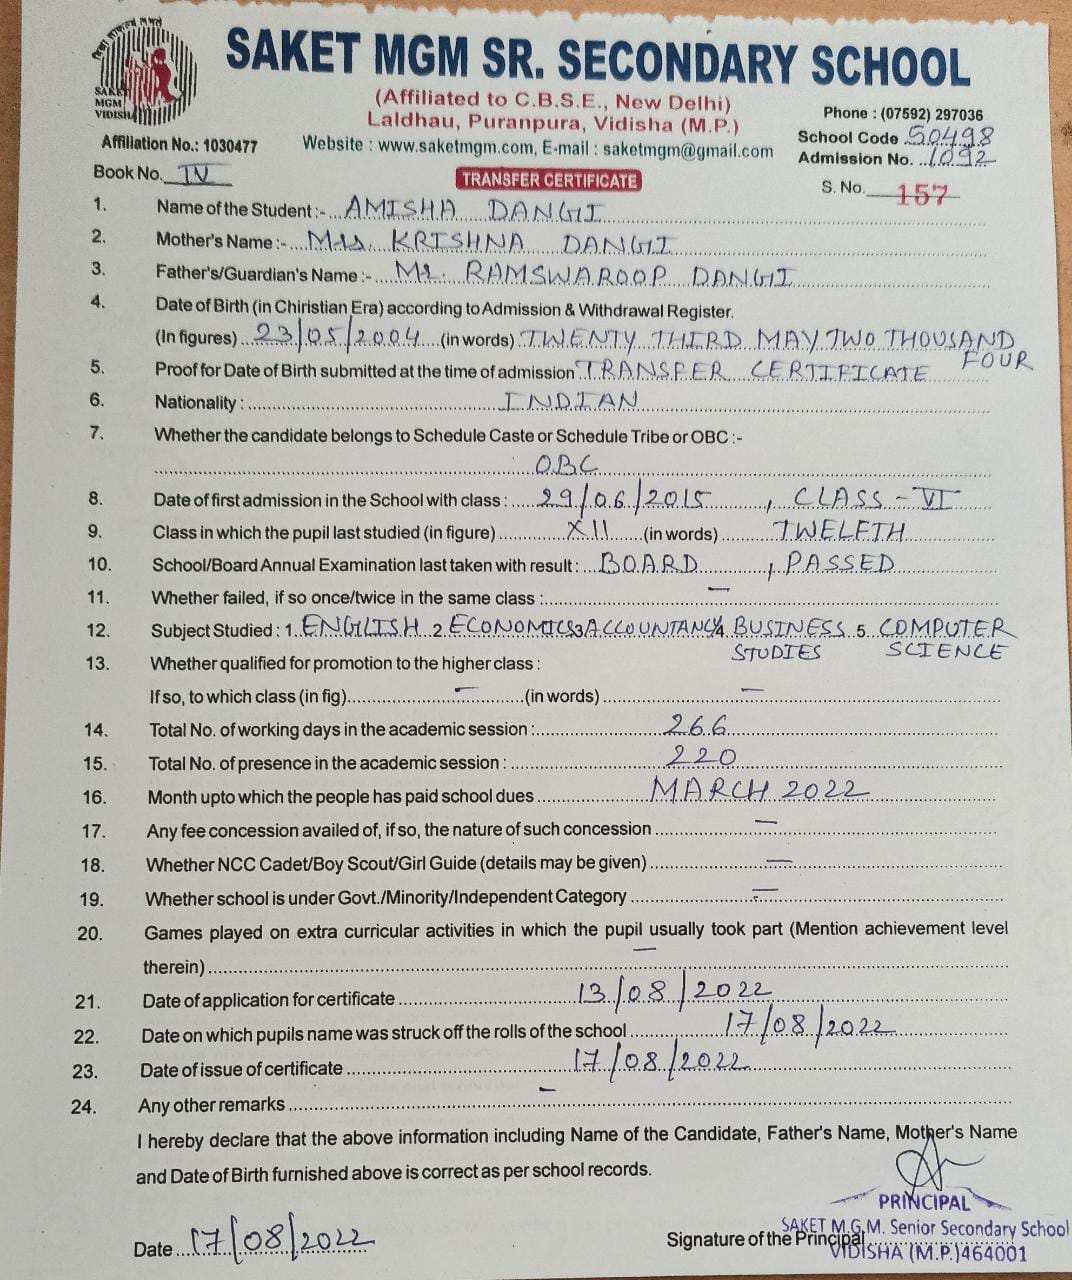 SAKET MGM SR. SECONDARY SCHOOL
SAKET
MGM
VIDISHA
(Affiliated to C.B.S.E., New Delhi)
Laldhau, Puranpura, Vidisha (M.P.)
Phone : (07592) 297036
Affiliation No.: 1030477
Website : www.saketmgm.com, E-mail : saketmgm@gmail.com
School Code 50498
Admission No. 1092
Book No. IV
TRANSFER CERTIFICATE
S. No. 157
1. Name of the Student :- AMISHA DANGI
2. Mother's Name :- Mrs. KRISHNA DANGI
3. Father's/Guardian's Name :- Mr. RAMSWAROOP DANGI
4. Date of Birth (in Chiristian Era) according to Admission & Withdrawal Register.
(In figures) 23/05/2004 (in words) TWENTY THIRD MAY TWO THOUSAND
FOUR
5. Proof for Date of Birth submitted at the time of admission TRANSFER CERTIFICATE
6. Nationality : INDIAN
7. Whether the candidate belongs to Schedule Caste or Schedule Tribe or OBC :-
OBC
8. Date of first admission in the School with class : 29/06/2015, CLASS - VI
9. Class in which the pupil last studied (in figure) XII (in words) TWELFTH
10. School/Board Annual Examination last taken with result : BOARD, PASSED
11. Whether failed, if so once/twice in the same class : —
12. Subject Studied : 1. ENGLISH 2. ECONOMICS 3 ACCOUNTANCY 4. BUSINESS 5. COMPUTER
STUDIES SCIENCE
13. Whether qualified for promotion to the higher class :
If so, to which class (in fig) — (in words) —
14. Total No. of working days in the academic session : 266
15. Total No. of presence in the academic session : 220
16. Month upto which the people has paid school dues MARCH 2022
17. Any fee concession availed of, if so, the nature of such concession —
18. Whether NCC Cadet/Boy Scout/Girl Guide (details may be given) —
19. Whether school is under Govt./Minority/Independent Category —
20. Games played on extra curricular activities in which the pupil usually took part (Mention achievement level
therein) —
21. Date of application for certificate 13/08/2022
22. Date on which pupils name was struck off the rolls of the school 17/08/2022
23. Date of issue of certificate 17/08/2022
24. Any other remarks —
I hereby declare that the above information including Name of the Candidate, Father's Name, Mother's Name
and Date of Birth furnished above is correct as per school records.
PRINCIPAL
SAKET M.G.M. Senior Secondary School
Date 17/08/2022
Signature of the Principal
VIDISHA (M.P.) 464001